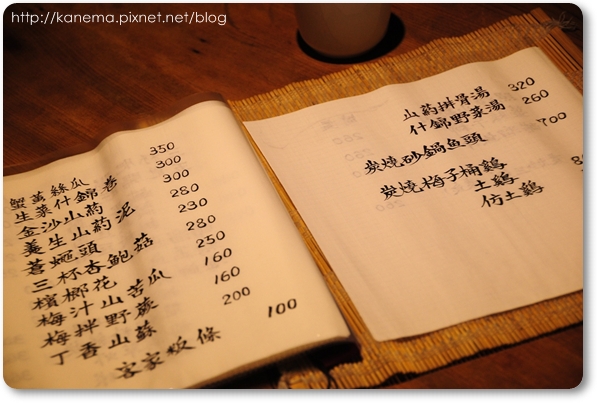 http://kanema.pixnet.net/blog
蟹黃絲瓜 350
生菜什錦卷 300
金沙山葯 300
養生山葯泥 280
蒼蠅頭 230
三杯杏鮑菇 280
檳榔花 250
梅汁山苦瓜 160
梅拌野蕨 160
丁香山蘇 200
客家粄條 100
山葯排骨湯 320
什錦野菜湯 260
炭燒砂鍋魚頭 700
炭燒梅子桶鷄
土鷄
仿土鷄